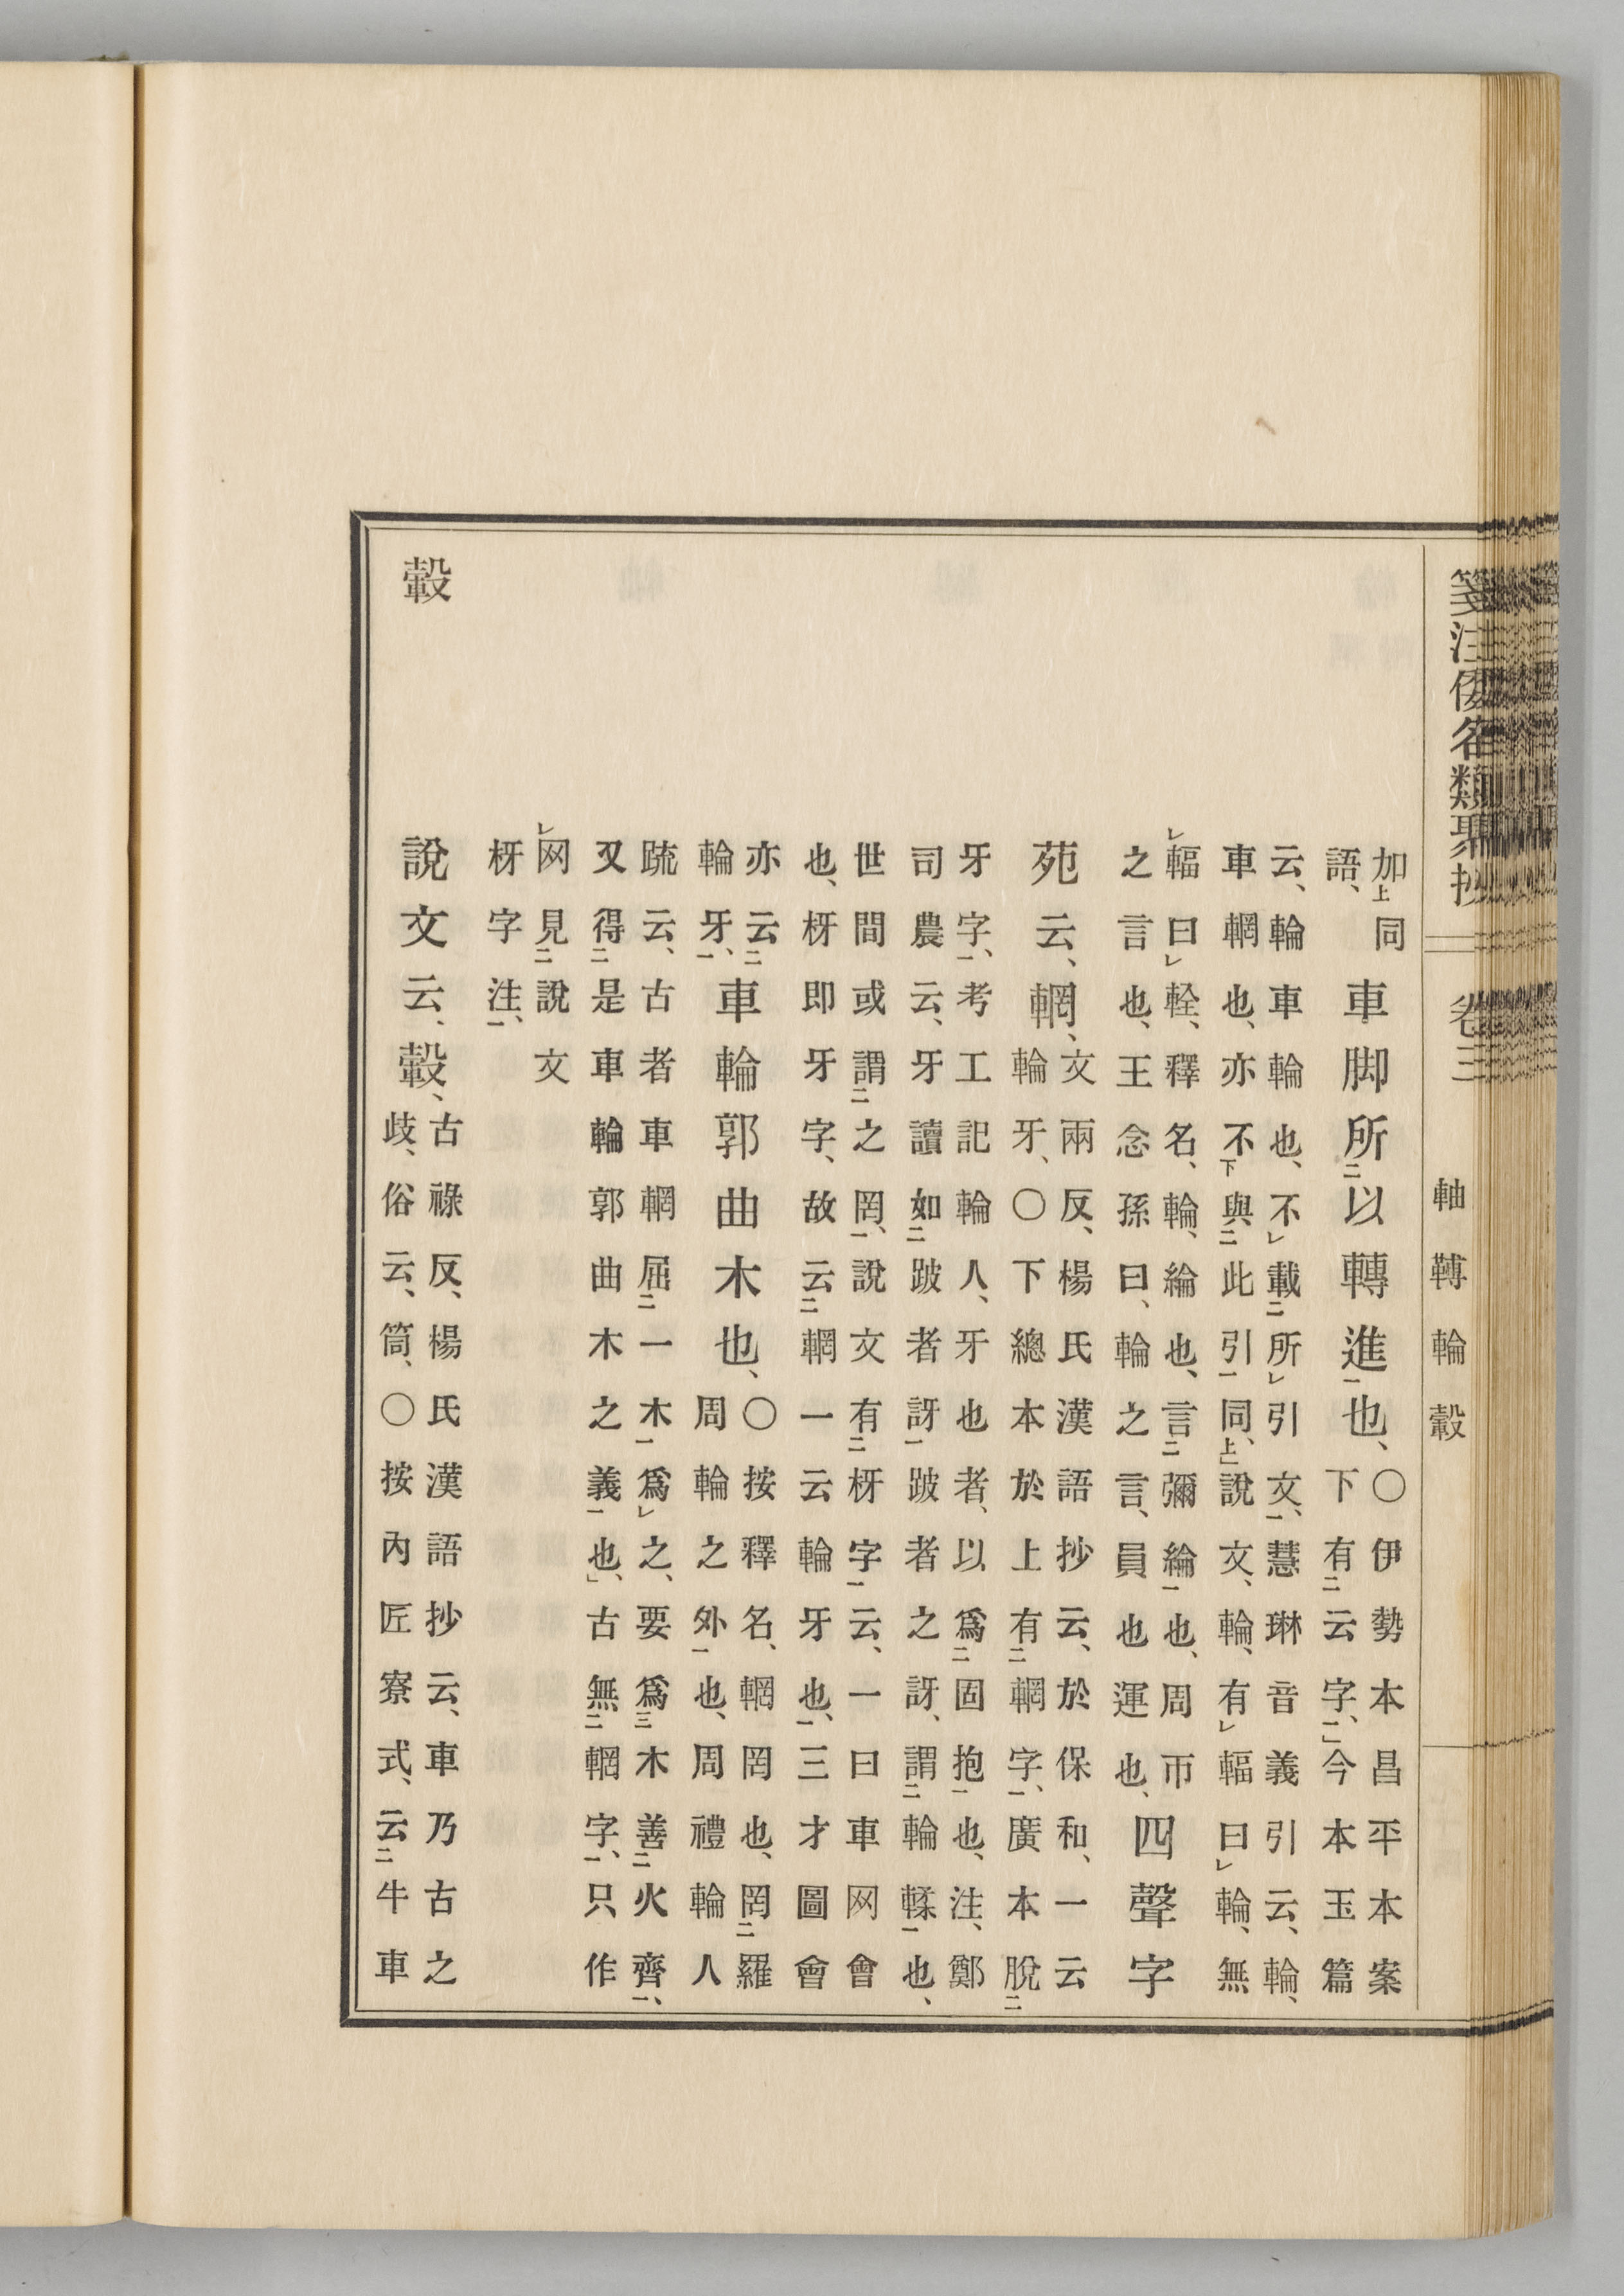 箋注倭名類聚抄 卷三 軸 輪 轂
加上同
語、
車脚所以轉進也、
○伊勢本昌平本案
下有云字、今本玉篇
云、輪車輪也、不載所引文、慧琳音義引云、輪、
車輞也、亦不與此引同、說文、輪、有輻曰輪、無
輻曰輇、釋名、輪、綸也、言彌綸也、周帀
之言也、王念孫曰、輪之言、員也運也、
四聲字
苑云、輞、
文兩反、楊氏漢語抄云、於保和、一云
輪牙、○下總本於上有輞字、廣本脫
牙字、考工記輪人、牙也者、以爲固抱也、注、鄭
司農云、牙讀如跛者訝跛者之訝、謂輪輮也、
世間或謂之罔、說文有枒字云、一曰車网會
也、枒即牙字、故云輞一云輪牙也、三才圖會
亦云
輪牙、
車輪郭曲木也、
○按釋名、輞罔也、罔羅
周輪之外也、周禮輪人
疏云、古者車輞屈一木爲之、要爲木善火齊、
又得是車輪郭曲木之義也、古無輞字、只作
网見說文
枒字注、
轂
說文云、轂、
古祿反、楊氏漢語抄云、車乃古之
歧、俗云、筒、○按內匠寮式、云牛車